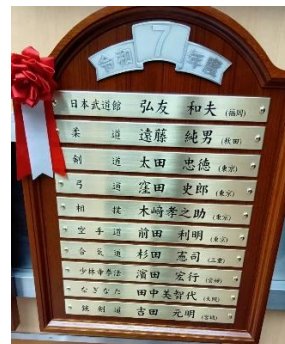 令和7年度
日本武道館 弘友 和夫 (福岡)
柔道 遠藤 純男 (秋田)
剣道 太田 忠徳 (東京)
弓道 窪田 史郎 (東京)
相撲 木﨑孝之助 (東京)
空手道 前田 利明 (東京)
合気道 杉田 憲司 (三重)
少林寺拳法 濱田 宏行
なぎなた 田中美智代 (大阪)
銃剣道 吉田 元明 (宮城)